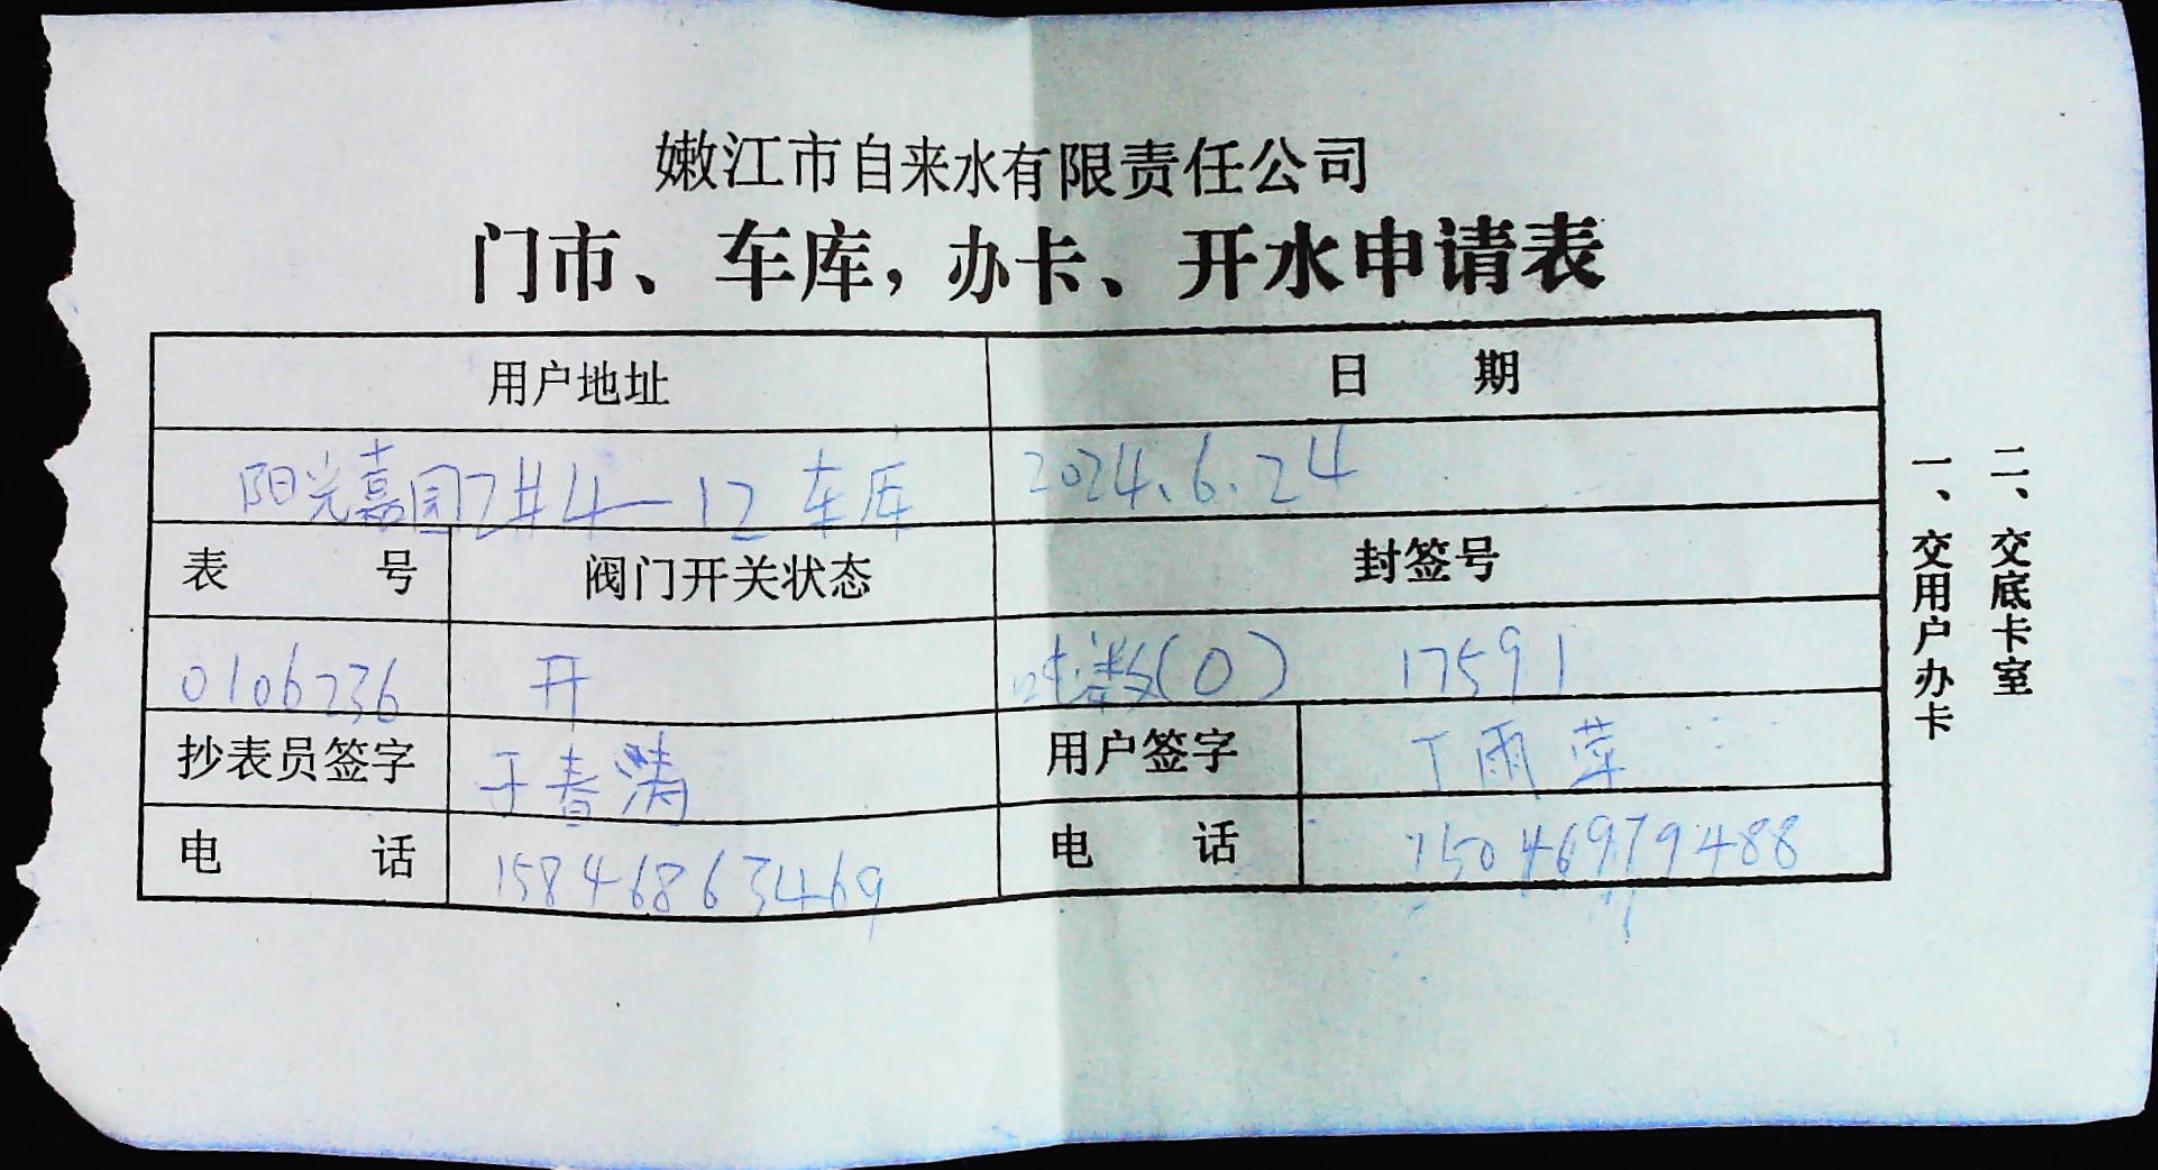 嫩江市自来水有限责任公司
门市、车库，办卡、开水申请表
用户地址 日 期
阳光嘉园2#4-12车库 2024.6.24
表 号 阀门开关状态 封签号
0106236 开 吨数(0) 17591
抄表员签字 于春涛 用户签字 丁雨萍
电 话 15846863469 电 话 15046979488
一、交用户办卡
二、交底卡室